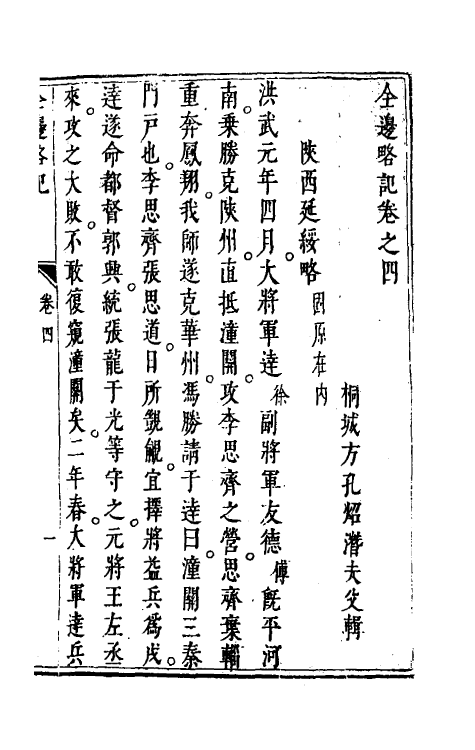 全邊略記卷之四
桐城方孔炤潛夫父輯
陝西延綏略固原在内
洪武元年四月大將軍達徐副將軍友德傅旣平河
南乘勝克陝州直抵潼關攻李思齊之營思齊棄輜
重奔鳳翔我師遂克華州馮勝請于達曰潼關三秦
門戸也李思齊張思道日所覬覦宜擇將益兵爲戍
達遂命都督郭興統張龍于光等守之元將王左丞
來攻之大敗不敢復窺潼關矣二年春大將軍達兵
全邊略記
卷四
一